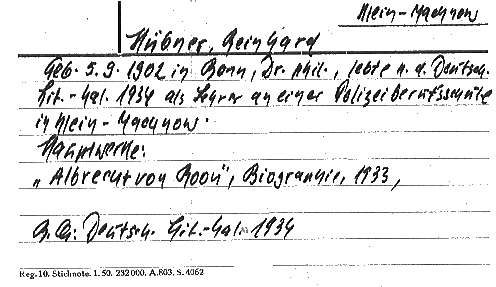 Klein-Machnow
Hübner, Reinhard
Geb. 5.9. 1902 in Bonn, Dr. phil., lebte n. d. Deutsch.
Lit.-Kal. 1934 als Lehrer an einer Polizeiberufsschule
in Klein-Machnow.
Hauptwerke:
„Albrecht von Roon", Biographie, 1933,
Deutsch. Lit.-Kal. 1934
Reg. 10. Stichnote. 1. 50. 232000. A.803. S. 4062